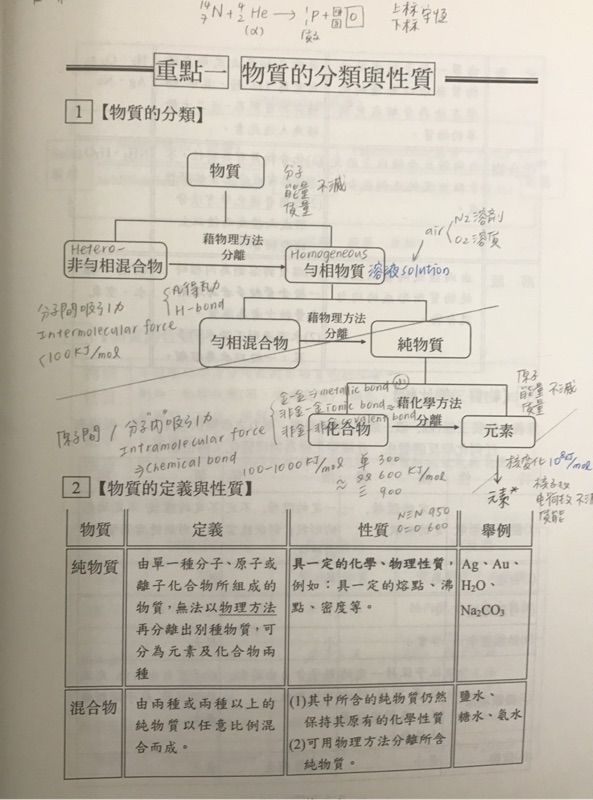 ¹⁴₇N + ⁴₂He → ¹₁P +
(α)
質子
上標
下標 守恆
重點一 物質的分類與性質
1 【物質的分類】
物質
分子
能量 不滅
質量
Hetero-
非勻相混合物
藉物理方法
分離
Homogeneous
勻相物質
溶液solution
air
N2 溶劑
O2 溶質
分子間吸引力
Intermolecular force
<100 KJ/mol
凡得瓦力
H-bond
勻相混合物
藉物理方法
分離
純物質
原子
能量 不滅
質量
原子間 / 分子"內"吸引力
Intramolecular force
⇒ Chemical bond
100-1000 KJ/mol
金-金⇒metallic bond
非金-金 ionic bond
非金-非金 covalent bond
化合物
藉化學方法
分離
元素
單 300
≈ 雙 600 KJ/mol
三 900
N≡N 950
O=O 600
核變化 10⁸KJ/mol
元素*
核子數
電荷數 不滅
質能
2 【物質的定義與性質】
物質 定義 性質 舉例
純物質
由單一種分子、原子或
離子化合物所組成的
物質，無法以物理方法
再分離出別種物質，可
分為元素及化合物兩
種
具一定的化學、物理性質，
例如：具一定的熔點、沸
點、密度等。
Ag、Au、
H₂O、
Na₂CO₃
混合物
由兩種或兩種以上的
純物質以任意比例混
合而成。
(1)其中所含的純物質仍然
保持其原有的化學性質
(2)可用物理方法分離所含
純物質。
鹽水、
糖水、氨水